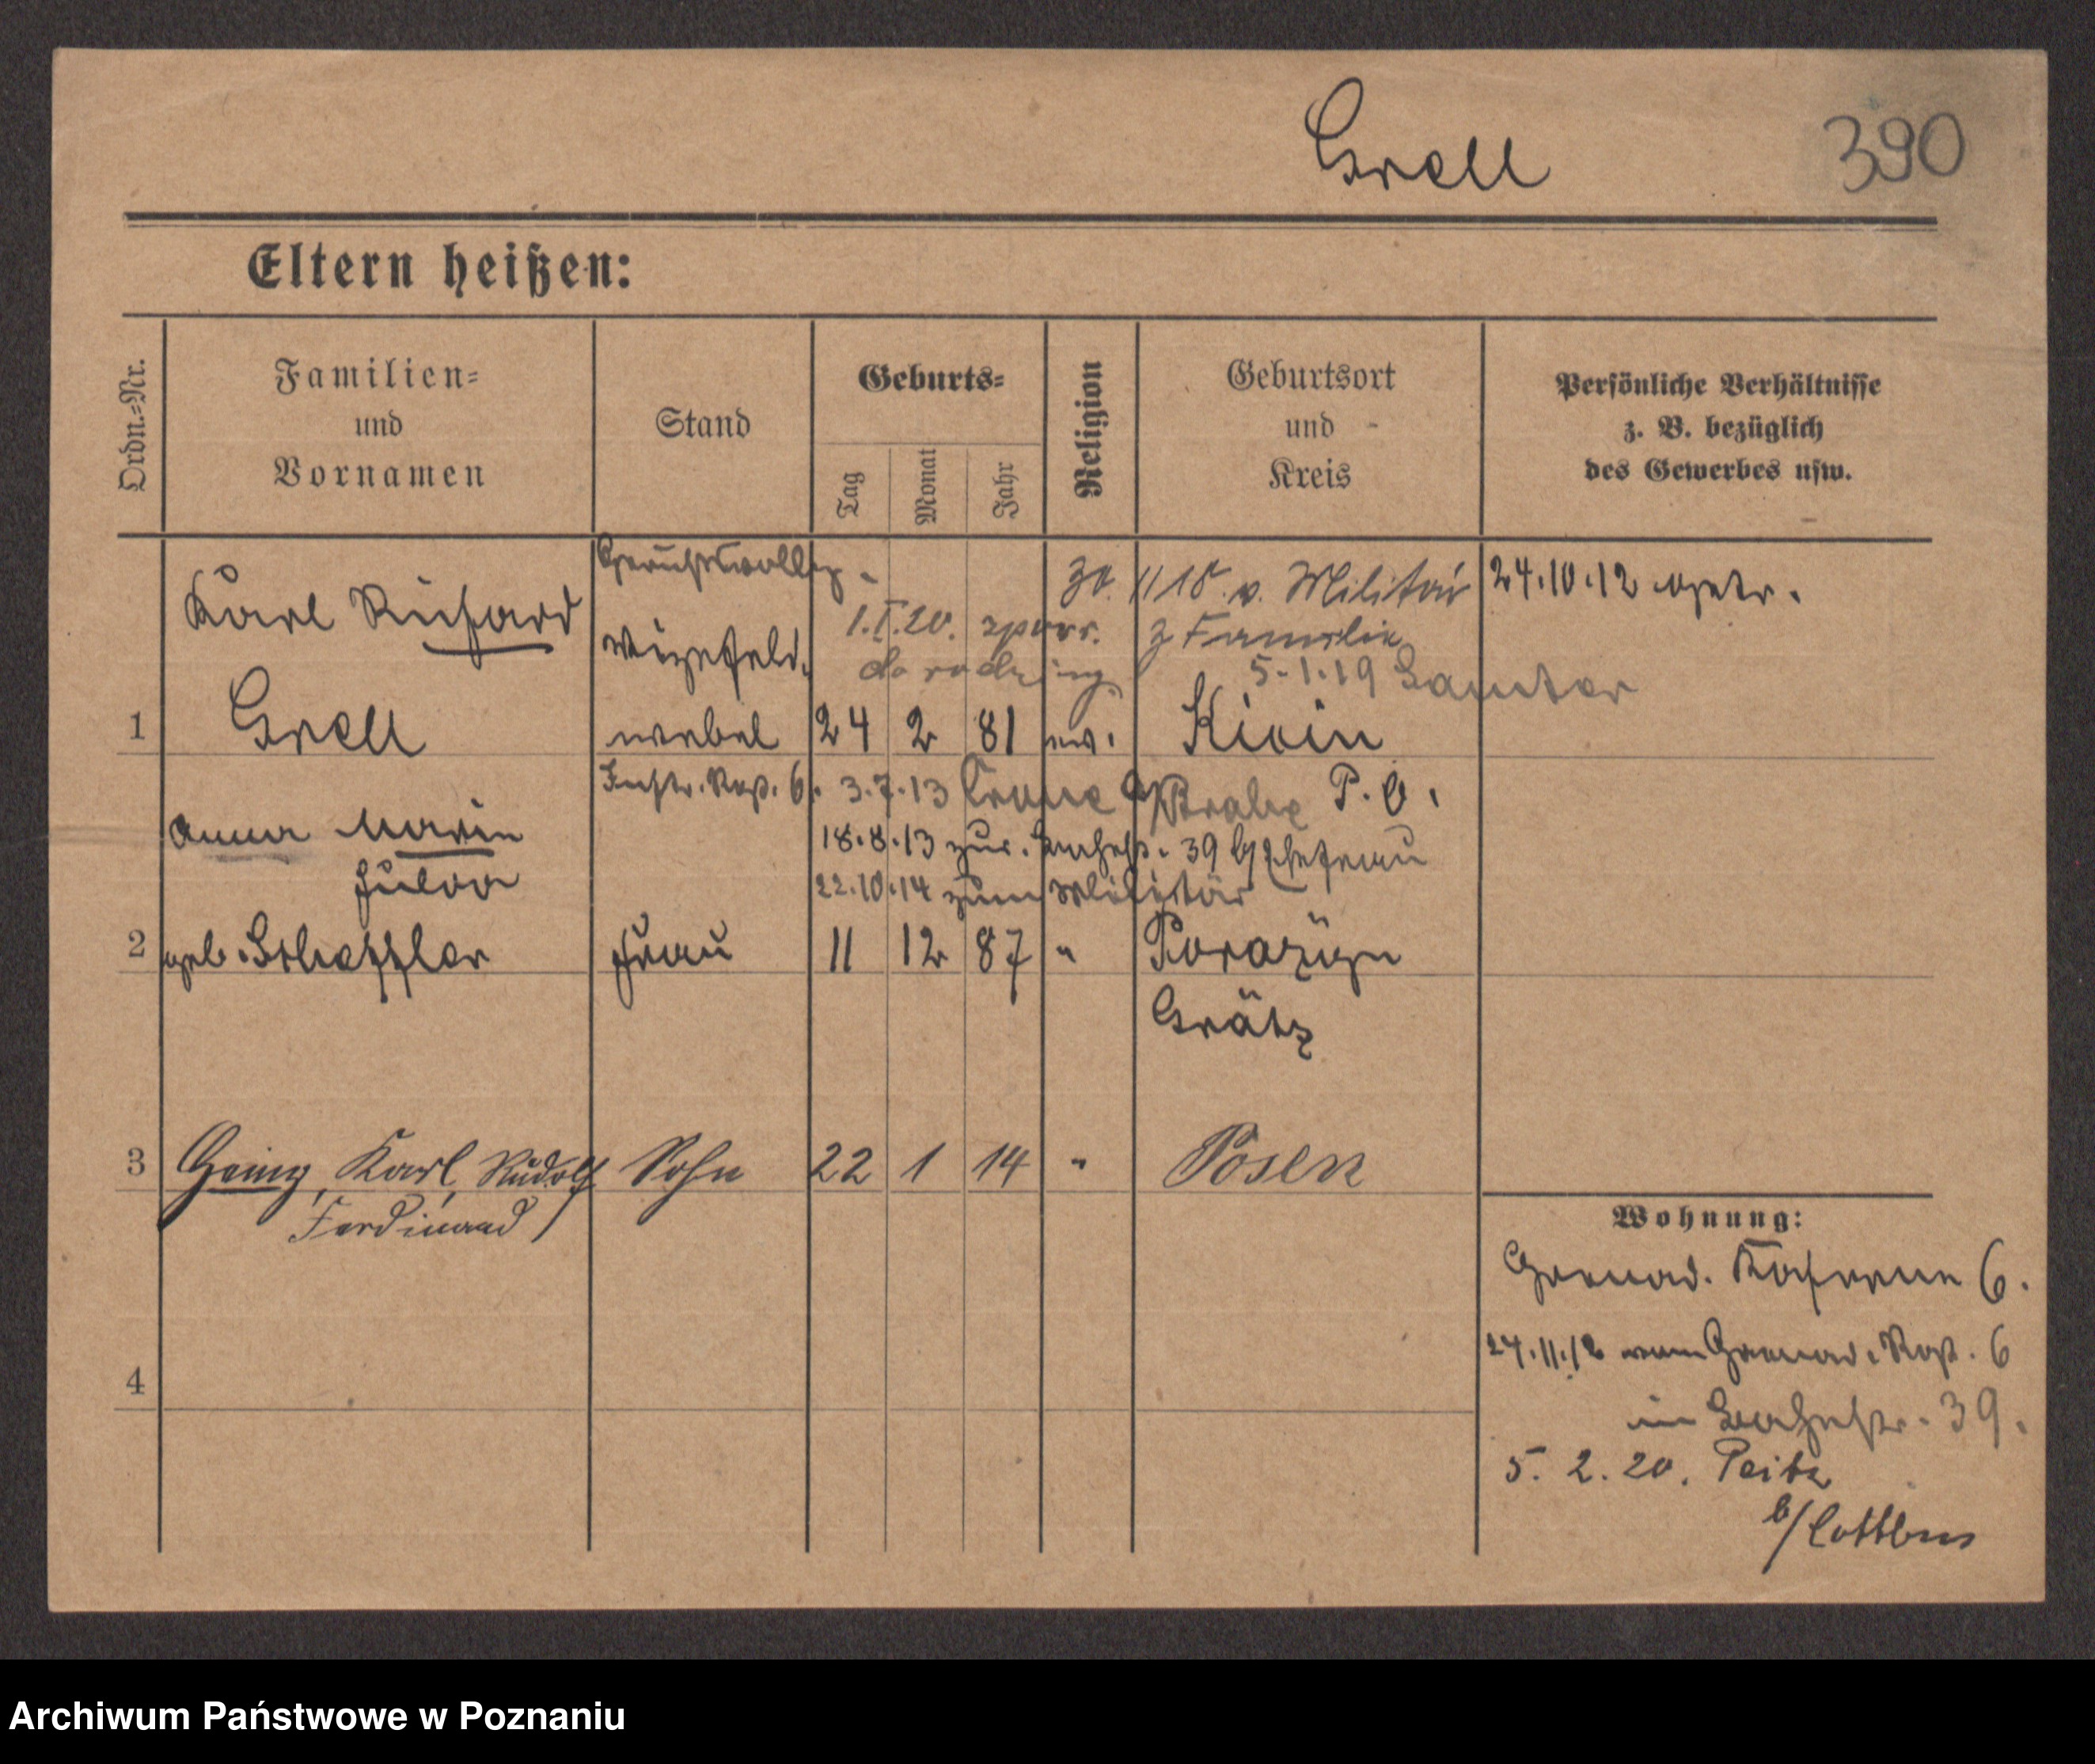 Grell
390
Eltern heißen:
Ordn.=Nr.
Familien=
und
Vornamen
Stand
Geburts=
Tag
Monat
Jahr
Religion
Geburtsort
und
Kreis
Persönliche Verhältnisse
z. B. bezüglich
des Gewerbes usw.
Gerichtsvollz.
30. 11 18. v. Militär
24.10.12
Karl Richard
1.I.20.
z Familie
Vizefeld.
do rodziny
5.1.19 Samter
1 Grell
webel
24 2 81 ev.
6. 3.7.13 Crone a/Brahe P. B.
Anna Maria
18.8.13 zur. 39
Hulda
22.10.14 zum Militär
2 geb. Scheffler
Frau
11 12 87 "
Porazyn
Grätz
3 Heinz, Karl, Rudolf
Sohn
22 1 14 "
Posen
Ferdinand
Wohnung:
Grenad. Kaserne 6.
24.11.12 von Grenad. 6
in 39.
4
5. 2. 20. Peitz
b/Cottbus
Archiwum Państwowe w Poznaniu